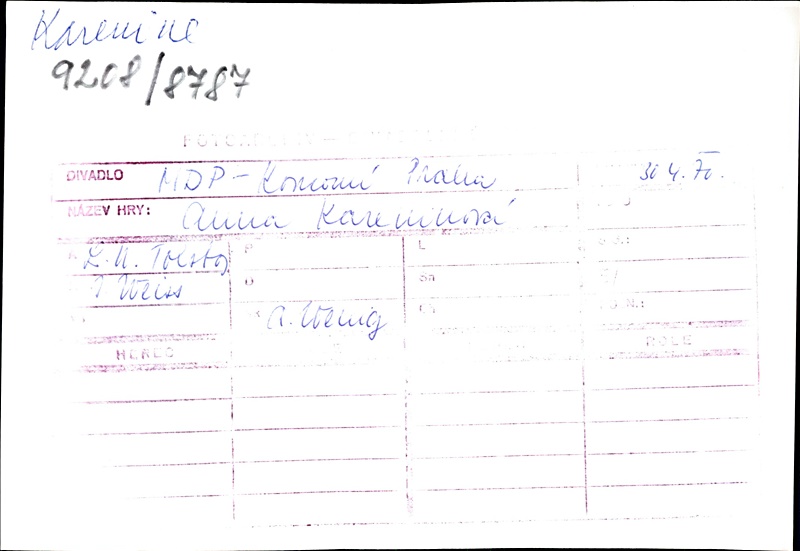 Karenine
9208/8787
DIVADLO MDP - Komorní Praha 30 4. 70.
NÁZEV HRY: Anna Kareninová
L. N. Tolstoj P L
J Weiss D
K A. Wenig
HEREC ROLE